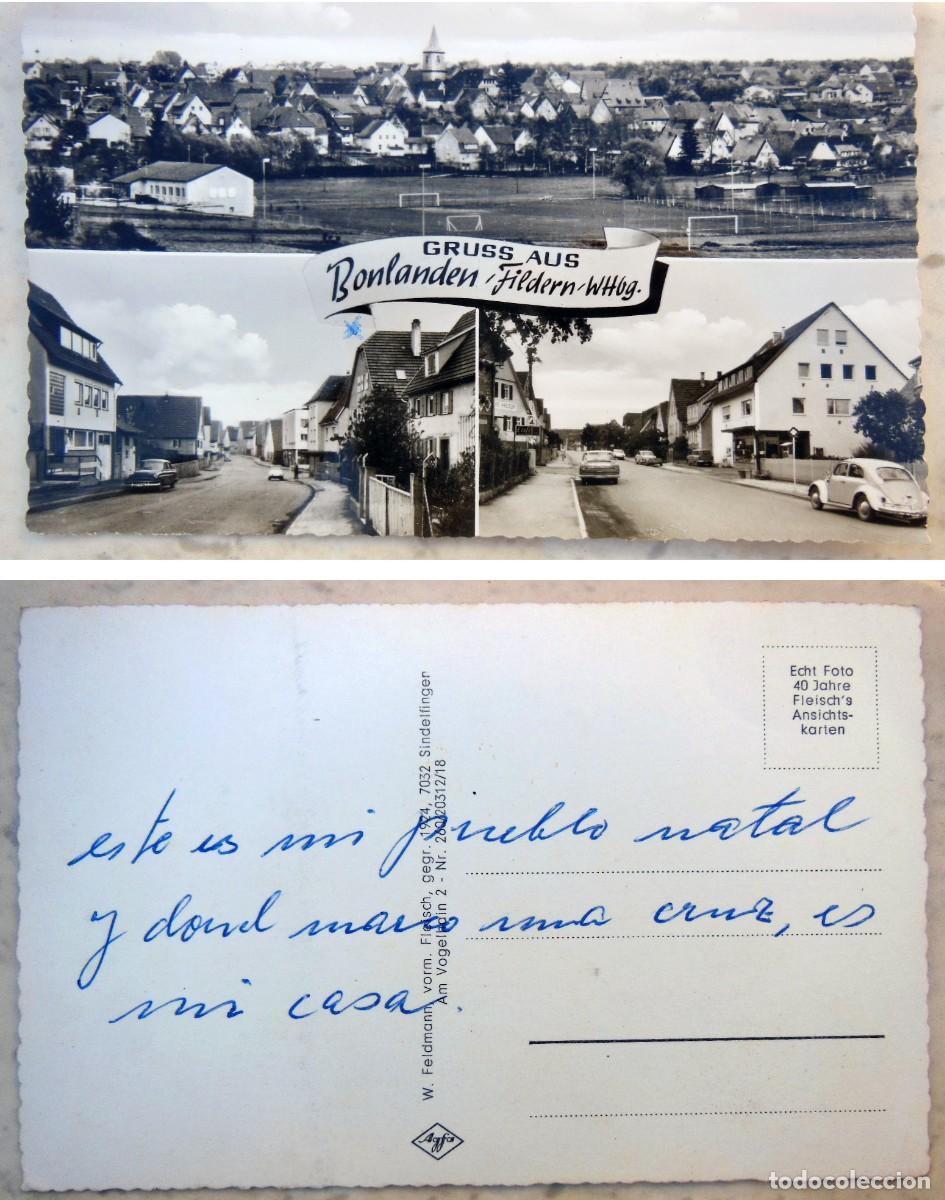 GRUSS AUS
Bonlanden/Fildern/WHbg.
Echt Foto
40 Jahre
Fleisch's
Ansichts-
karten
W. Feldmann vorm. Fleisch, gegr. 1924, 7032 Sindelfingen
Am Vogelhain 2 - Nr. 260/20312/18
este es mi pueblo natal
y dond marco una cruz, es
mi casa.
Agfa
todocoleccion